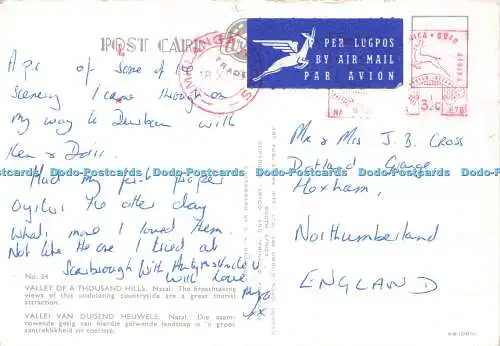 POST CARD
PER LUGPOS
BY AIR MAIL
PAR AVION
A p.c. of some of the
scenery I came through on
my way to Durban with
Ken & Doris.
Had my first proper
the other day
What's more I loved them.
Not like the one I tried at
Scarborough with
with Love
xx
Mr & Mrs J. B. Cross
Grange
Hexham,
Northumberland
ENGLAND
No. 24
VALLEY OF A THOUSAND HILLS. Natal. The breathtaking
views of this undulating countryside are a great tourist
attraction.
VALLEI VAN DUISEND HEUWELS, Natal. Die asem-
rowende gesig van hierdie golwende landskap is 'n groot
aantreklikheid vir toeriste.
Dodo Postcards